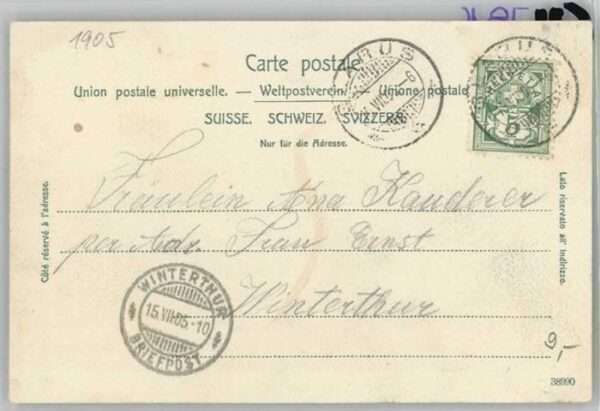 1905
Carte postale.
Union postale universelle. — Weltpostverein. — Unione postale
SUISSE. SCHWEIZ. SVIZZERA.
Nur für die Adresse.
Côté réservé à l'adresse.
Lato riservato all' indirizzo.
HELVETIA
5
Fräulein Anna Kauderer
per Adr. Frau Ernst
Winterthur
WINTERTHUR
15.VII.05.-10
BRIEFPOST
9,-
38990